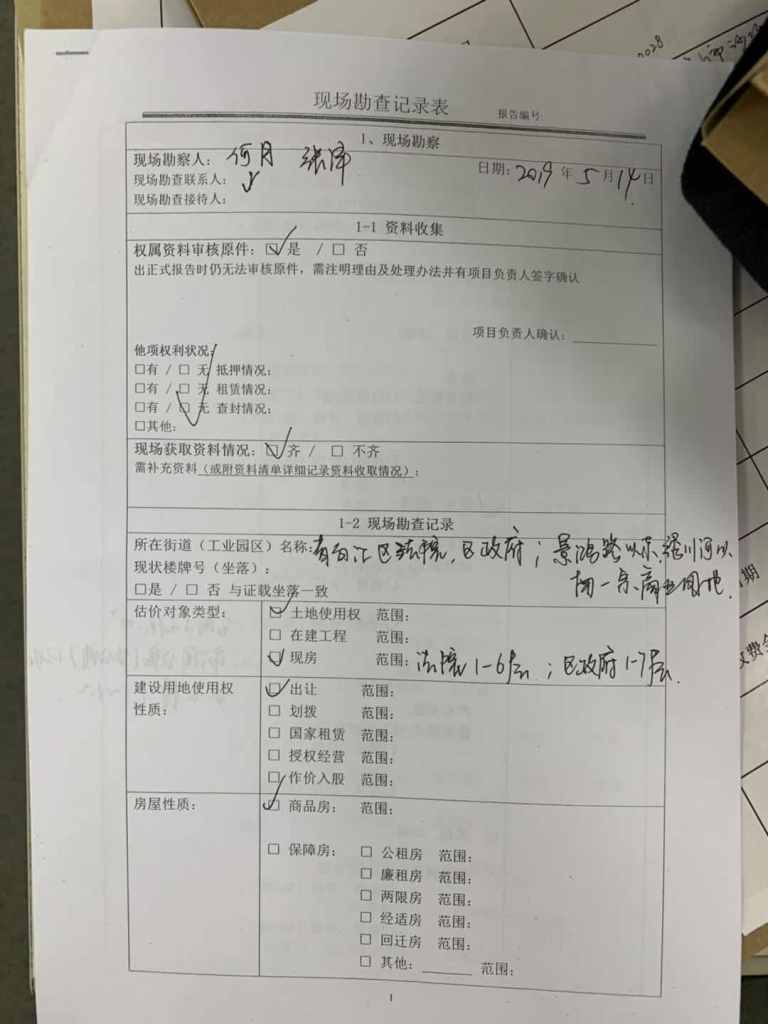 现场勘查记录表
报告编号:
1、现场勘察
现场勘察人: 何月 张萍
日期: 2019 年 5 月 14 日
现场勘查联系人:
现场勘查接待人:
1-1 资料收集
权属资料审核原件: ☑ 是 / □ 否
出正式报告时仍无法审核原件，需注明理由及处理办法并有项目负责人签字确认
项目负责人确认:
他项权利状况:
□有 / □ 无 抵押情况:
□有 / □ 无 租赁情况:
□有 / □ 无 查封情况:
□其他:
现场获取资料情况: ☑ 齐 / □ 不齐
需补充资料（或附资料清单详细记录资料收取情况）:
1-2 现场勘查记录
所在街道（工业园区）名称: 区法院, 区政府; 景鸿路以东, 银川河以
现状楼牌号（坐落）:
□是 / □ 否 与证载坐落一致
商业用地.
估价对象类型: ☑ 土地使用权 范围:
□ 在建工程 范围:
☑ 现房 范围: 法院1-6层; 区政府1-7层.
建设用地使用权 ☑ 出让 范围:
性质: □ 划拨 范围:
□ 国家租赁 范围:
□ 授权经营 范围:
□ 作价入股 范围:
房屋性质: ☑ 商品房: 范围:
□ 保障房: □ 公租房 范围:
□ 廉租房 范围:
□ 两限房 范围:
□ 经适房 范围:
□ 回迁房 范围:
□ 其他:______ 范围:
1
2028
期
改费金